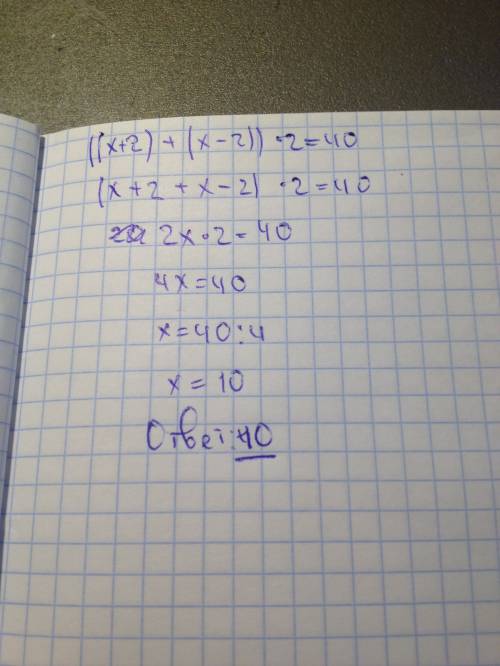 ((x+2) + (x-2)) · 2 = 40
(x + 2 + x - 2) · 2 = 40
2x · 2 = 40
4x = 40
x = 40 : 4
x = 10
Ответ: 10